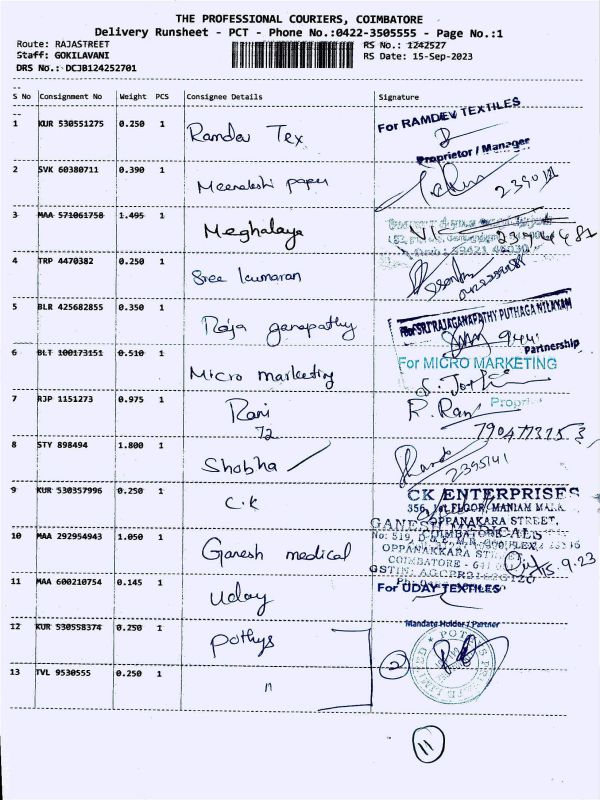 THE PROFESSIONAL COURIERS, COIMBATORE
Delivery Runsheet - PCT - Phone No.:0422-3505555 - Page No.:1
Route: RAJASTREET RS No.: 1242527
Staff: GOKILAVANI RS Date: 15-Sep-2023
DRS No.: DCJB124252701
S No Consignment No Weight PCS Consignee Details Signature
1 KUR 530551275 0.250 1 Ramdev Tex For RAMDEV TEXTILES
Proprietor / Manager
2 SVK 60380711 0.390 1 Meenakshi paper
3 MAA 571061758 1.495 1 Meghalaya
4 TRP 4470382 0.250 1 Sree kumaran
5 BLR 425682855 0.350 1 Raja ganapathy For SRI RAJAGANAPATHY PUTHAGA NILAYAM
Partnership
6 BLT 100173151 0.510 1 Micro marketing For MICRO MARKETING
7 RJP 1151273 0.975 1 Rani R. Rani
72
8 STY 898494 1.800 1 Shobha 2395141
9 KUR 530357996 0.250 1 C.K CK ENTERPRISES
356, 1st FLOOR, MANIAM MALA
OPPANAKARA STREET,
10 MAA 292954943 1.050 1 Ganesh medical GANESH MEDICALS
OPPANAKKARA
COIMBATORE - 641
15.9.23
11 MAA 600210754 0.145 1 Uday For UDAY TEXTILES
Mandate Holder / Partner
12 KUR 530558374 0.250 1 Pothys
13 TVL 9530555 0.250 1 " 2
11